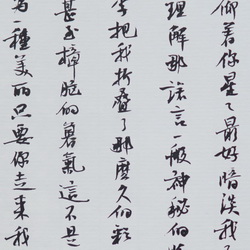 仰着你星々最好暗淡我
理解那言一般神秘的
把我折疊了那麼久的彩
甚至樟脑的暮氣這不是
一種美丽只要你走来我